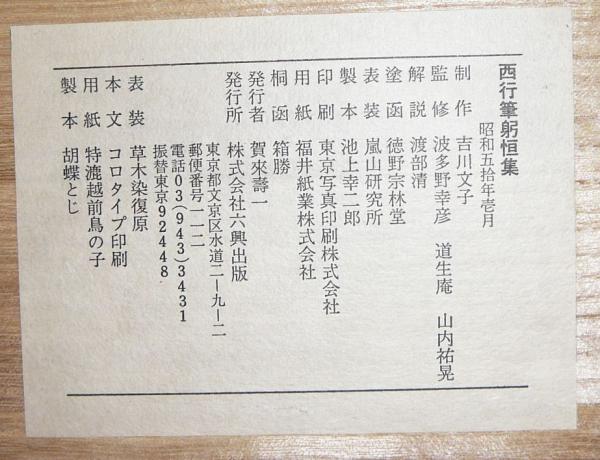 西行筆躬恒集
昭和五拾年壱月
制作 吉川文子
監修 波多野幸彦 道生庵 山内祐晃
解説 渡部清
塗函 徳野宗林堂
表装 嵐山研究所
製本 池上幸二郎
印刷 東京写真印刷株式会社
用紙 福井紙業株式会社
桐函 箱勝
発行者 賀來壽一
発行所 株式会社六興出版
東京都文京区水道二ー九ー二
郵便番号一一二
電話03(943)3431
振替東京92448
表装 草木染復原
本文 コロタイプ印刷
用紙 特漉越前鳥の子
製本 胡蝶とじ